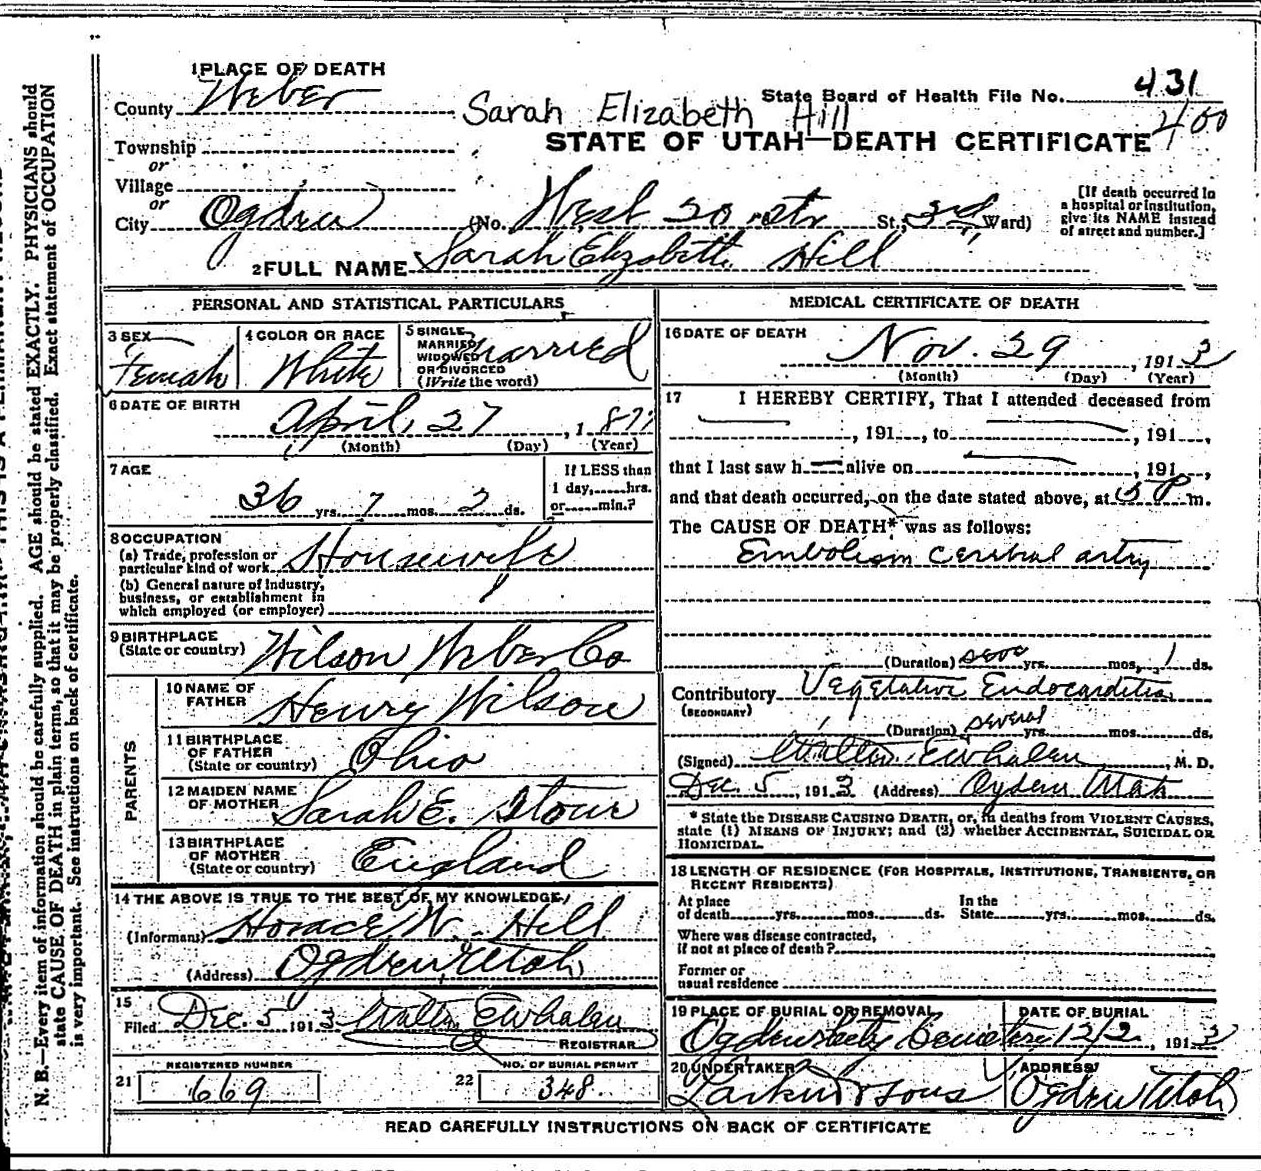 1 PLACE OF DEATH
County Weber
State Board of Health File No. 431
400
Sarah Elizabeth Hill
STATE OF UTAH—DEATH CERTIFICATE
Township
or
Village
or
City Ogden (No. West 20 St., 3rd Ward)
[If death occurred in a hospital or institution, give its NAME instead of street and number.]
2 FULL NAME Sarah Elizabeth Hill
PERSONAL AND STATISTICAL PARTICULARS
3 SEX Female
4 COLOR OR RACE White
5 SINGLE, MARRIED, WIDOWED OR DIVORCED (Write the word) Married
6 DATE OF BIRTH April, 27, 1877
(Month) (Day) (Year)
7 AGE 36 yrs. 7 mos. 2 ds.
If LESS than 1 day,......hrs. or......min.?
8 OCCUPATION
(a) Trade, profession or particular kind of work Housewife
(b) General nature of Industry, business, or establishment in which employed (or employer)
9 BIRTHPLACE (State or country) Wilson Weber Co
PARENTS
10 NAME OF FATHER Henry Wilson
11 BIRTHPLACE OF FATHER (State or country) Ohio
12 MAIDEN NAME OF MOTHER Sarah E.
13 BIRTHPLACE OF MOTHER (State or country) England
14 THE ABOVE IS TRUE TO THE BEST OF MY KNOWLEDGE
(Informant) Horace W. Hill
(Address) Ogden Utah
15
Filed Dec. 5 1913 Walter E Whalen
REGISTRAR
REGISTERED NUMBER
21 669
NO. OF BURIAL PERMIT
22 348
MEDICAL CERTIFICATE OF DEATH
16 DATE OF DEATH Nov. 29, 1913
(Month) (Day) (Year)
17 I HEREBY CERTIFY, That I attended deceased from
, 191..., to , 191...,
that I last saw h alive on , 191...,
and that death occurred, on the date stated above, at 5 P m.
The CAUSE OF DEATH* was as follows:
Embolism cerebral artry
(Duration) yrs. mos. 1 ds.
Contributory Vegetative Endocarditis
(SECONDARY)
(Duration) several yrs. mos. ds.
(Signed) Walter E Whalen, M. D.
Dec. 5, 1913 (Address) Ogden Utah
* State the DISEASE CAUSING DEATH, or, in deaths from VIOLENT CAUSES, state (1) MEANS OF INJURY; and (2) whether ACCIDENTAL, SUICIDAL OR HOMICIDAL.
18 LENGTH OF RESIDENCE (FOR HOSPITALS, INSTITUTIONS, TRANSIENTS, OR RECENT RESIDENTS)
At place of death yrs. mos. ds. In the State yrs. mos. ds.
Where was disease contracted, if not at place of death?
Former or usual residence
19 PLACE OF BURIAL OR REMOVAL Ogden City Cemetery
DATE OF BURIAL 12/2, 1913
20 UNDERTAKER Larkin & Sons
ADDRESS Ogden Utah
READ CAREFULLY INSTRUCTIONS ON BACK OF CERTIFICATE
N. B.—Every item of information should be carefully supplied. AGE should be stated EXACTLY. PHYSICIANS should
state CAUSE OF DEATH in plain terms, so that it may be properly classified. Exact statement of OCCUPATION
is very important. See instructions on back of certificate.